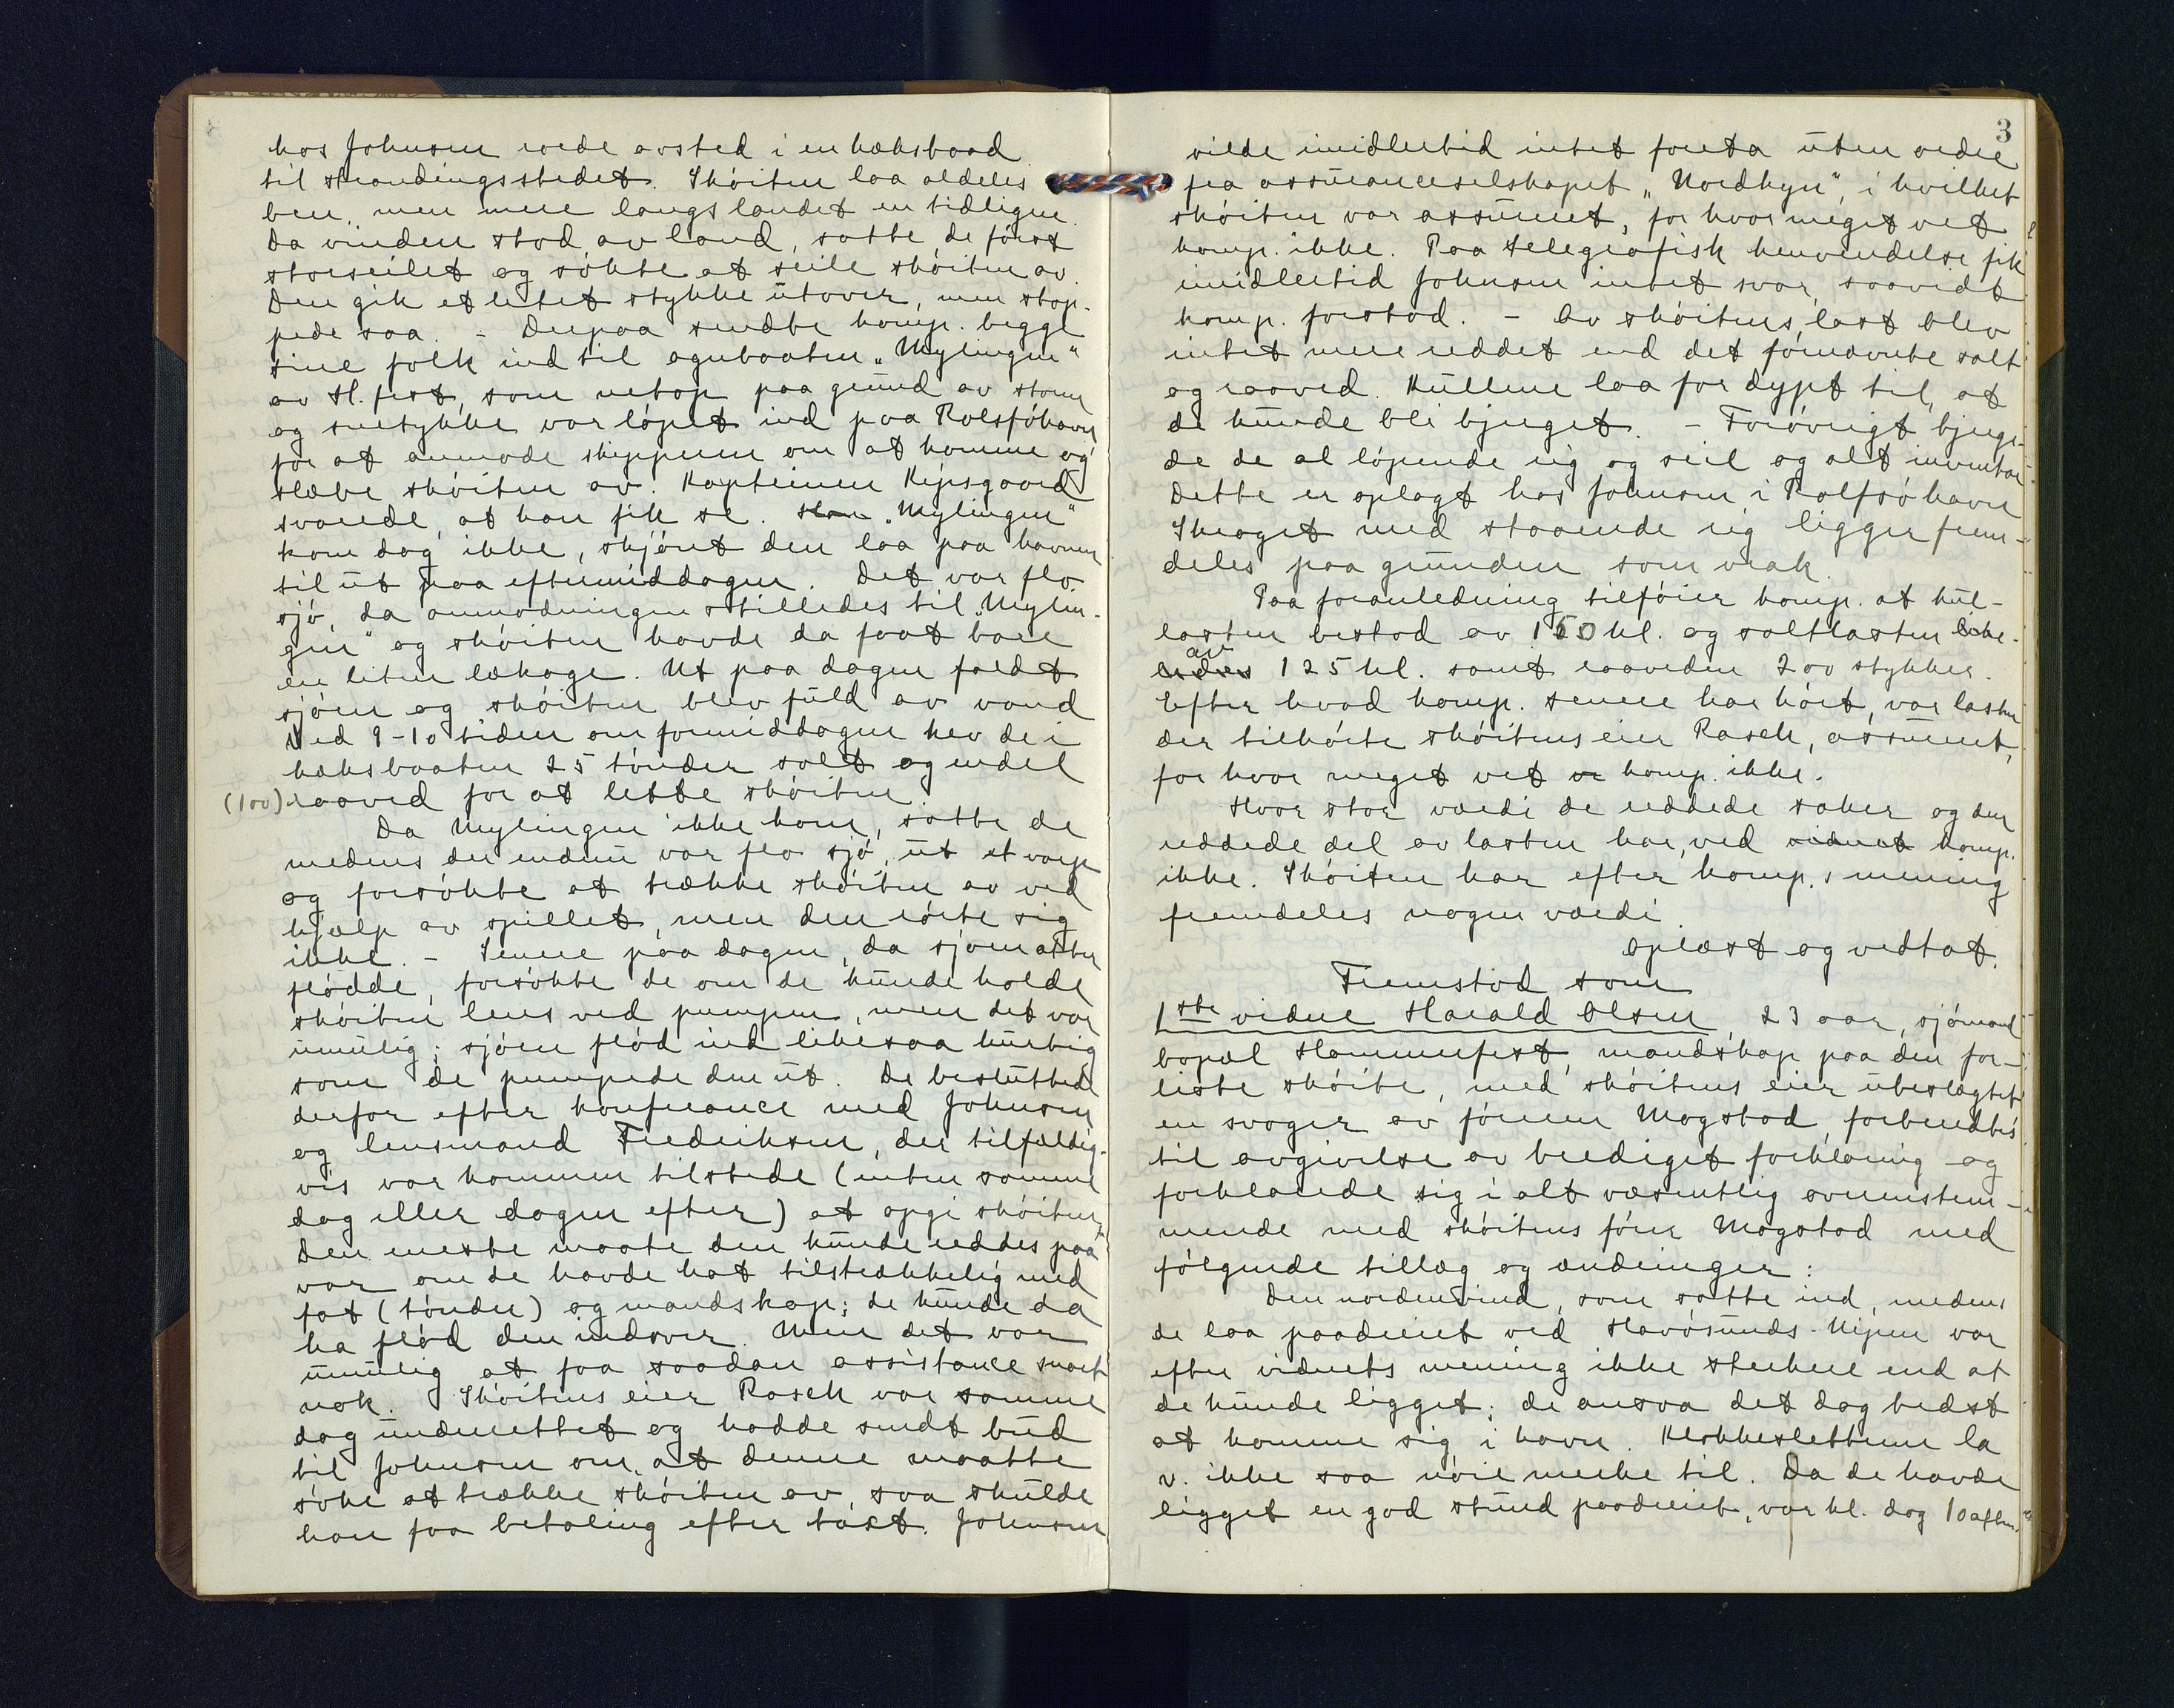 hos Johnsen roede avsted i en kæksbaad
til strandingsstedet. Skøiten laa aldeles
ben, men mere langs landet en tidligere.
Da vinden stod av land, satte de først
storseilet og søkte at seile skøiten av.
Den gik et litet stykke utover, men stop-
pede saa. - Derpaa sendte komp. begge
sine folk ind til agnbaaten "Mylingen"
av H.fest, som netop paa grund av storm
og snetykke var løpet ind paa Rolfsøhavn
for at anmode skipperen om at komme og
slæbe skøiten av. Kapteinen Kipsgaard
svarede, at han fik se. "Mylingen"
kom dog ikke, skjønt den laa paa havnen
til ut paa eftermiddagen. Det var flo
sjø, da anmodningen stilledes til "Mylin-
gen" og skøiten havde da faat bare
en liten lækage. Ut paa dagen faldt
sjøen og skøiten blev fuld av vand
Ved 9-10 tiden om formiddagen hev de i
kæksbaaten 25 tønder salt og endel
(100) raaved for at lette skøiten.
Da Mylingen ikke kom, satte de
medens der endnu var flo sjø, ut et varp
og forsøkte at trække skøiten av ved
hjælp av spillet, men den rørte sig
ikke. - Senere paa dagen, da sjøen atter
flødde, forsøkte de om de kunde holde
skøiten lens ved pumpen, men det var
umulig; sjøen flød ind likesaa hurtig
som de pumpede den ut. De besluttede
derfor efter konferance med Johnsen
og lensmand Fredriksen, der tilfældig-
vis var kommen tilstede (enten samme
dag eller dagen efter) at opgi skøiten.
Den eneste maate den kunde reddes paa
var om de havde hat tilstrækkelig med
fat (tønder) og mandskap; de kunde da
ha flød den indover. Men det var
umulig at faa saadan assistance snart
nok. Skøitens eier Rasch var samme
dag underrettet og hadde sendt bud
til Johnsen om, at denne maatte
søke at trække skøiten av, saa skulde
han faa betaling efter takst. Johnsen
3
vilde imidlertid intet foreta uten ordre
fra assuranceselskapet "Nordkyn" i hvilket
skøiten var assureret, for hvor meget vet
komp. ikke. Paa telegrafisk henvendelse fik
imidlertid Johnsen intet svar, saavidt
komp. forstod. - Av skøitens last blev
intet mere reddet end det førnævnte salt
og raaved. Kullene laa for dypt til, at
de kunde bli bjerget. - Forøvrigt bjerge-
de de al løpende rig og seil og alt inventar.
Dette er oplagt hos Johnsen i Rolfsøhavn
Skroget med staaende rig ligger frem-
deles paa grunden som vrak.
Paa foranledning tilføier komp. at kul-
lasten bestod av 150 hl. og saltlasten
av 125 hl. samt raaveden 200 stykker.
Efter hvad komp. senere har hørt, var lasten
der tilhørte skøitens eier Rasch, assureret,
for hvor meget vet komp. ikke.
Hvor stor værdi de reddede saker og den
reddede del av lasten har, ved vidnet komp.
ikke. Skøiten har efter komp.s mening
fremdeles nogen værdi
Oplæst og vedtat.
Fremstod som
1ste vidne Harald Olsen, 23 aar, sjømand
bopæl Hammerfest, mandskap paa den for-
liste skøite, med skøitens eier ubeslægtet
en svoger av føreren Mogstad, forberedtes
til avgivelse av beediget forklaring og
forklarede sig i alt væsentlig overenstem-
mende med skøitens fører Mogstad med
følgende tillæg og ændringer:
Den nordenvind, som satte ind, medens
de laa paadreiet ved Havøsunds-Nipen var
efter vidnets mening ikke sterkere end at
de kunde ligget; de ansaa det dog bedst
at komme sig i havn. Klokkesletterne la
v. ikke saa nøie merke til. Da de havde
ligget en god stund paadreiet, var kl. dog 10 aften